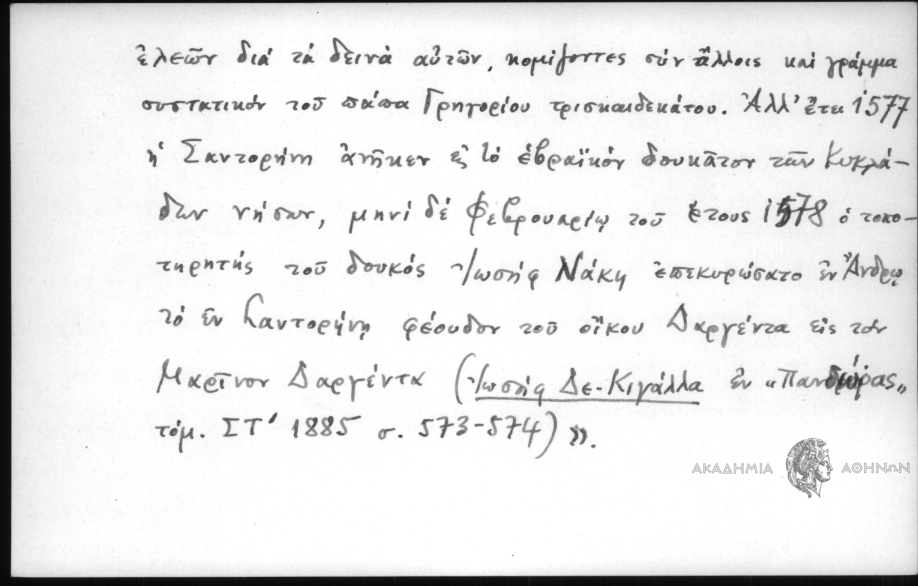 ἐλεῶν διά τά δεινὰ αὐτῶν, κομίζοντες σύν ἄλλοις καί γράμμα
συστατικόν τοῦ πάπα Γρηγορίου τρισκαιδεκάτου. Ἀλλ' ἔτει 1577
ἡ Σαντορήνη ἀνῆκεν εἰς τό ἑβραϊκόν δουκᾶτον τῶν Κυκλά-
δων νήσων, μηνί δέ Φεβρουαρίῳ τοῦ ἔτους 1578 ὁ τοπο-
τηρητής τοῦ δουκός Ἰωσήφ Νάκη ἐπεκυρώσατο ἐν Ἄνδρῳ
τό ἐν Σαντορήνῃ φέουδον τοῦ οἴκου Δαργέντα εἰς τόν
Μαρῖνον Δαργέντα (Ἰωσήφ Δε-Κιγάλλα ἐν «Πανδώρας»
τόμ. ΣΤ' 1885 σ. 573-574)».
ΑΚΑΔΗΜΙΑ ΑΘΗΝΩΝ